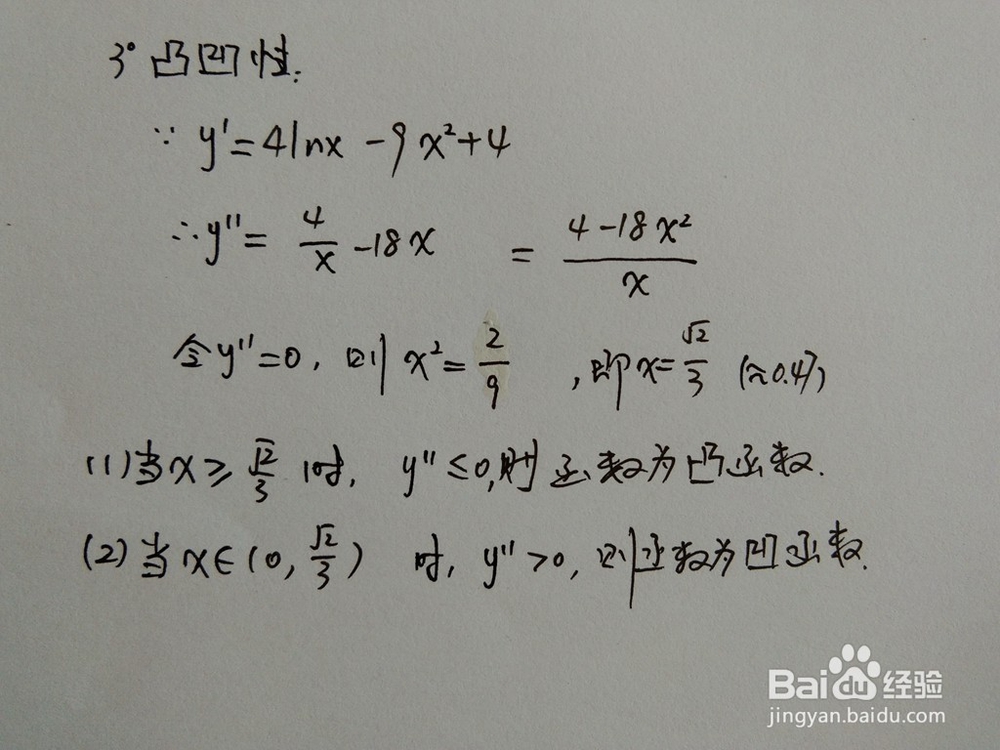 3° 凸凹性:
∵ y' = 4lnx - 9x² + 4
∴ y'' = 4/x - 18x = (4 - 18x²)/x
令 y'' = 0, 则 x² = 2/9, 即 x = √2/3 (≈0.47)
(1) 当 x ≥ √2/3 时, y'' ≤ 0, 则函数为凸函数.
(2) 当 x ∈ (0, √2/3) 时, y'' > 0, 则函数为凹函数.
Baidu 经验
jingyan.baidu.com